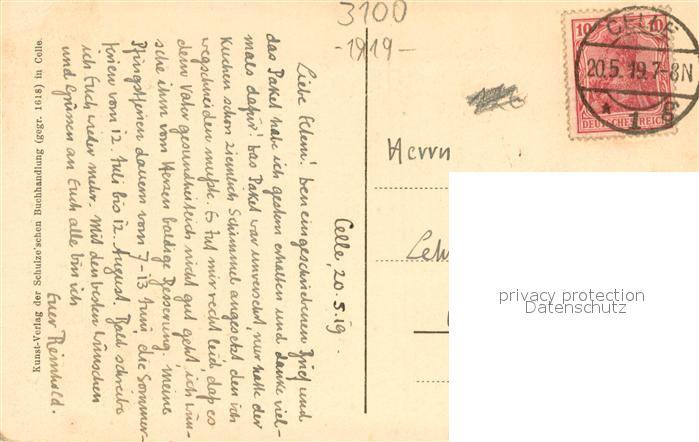 3100
-1919-
CELLE
20.5.19.7-8N
* 1 g
10 10
DEUTSCHES REICH
Herrn
Leh
privacy protection
Datenschutz
Celle, 20.5.19.
Liebe Eltern! Den eingeschriebenen Brief und
das Paket habe ich gestern erhalten und danke viel-
mals dafür. Das Paket war unversehrt, nur hatte der
Kuchen schon ziemlich Schimmel angesetzt den ich
wegschneiden mußte. Es tut mir recht leid, daß es
dem Vater gesundheitlich nicht gut geht, ich wün-
sche ihm von Herzen baldige Besserung. Meine
Pfingstferien dauern vom 7-13 Juni, die Sommer-
ferien vom 12. Juli bis 12. August. Bald schreibe
ich Euch wieder mehr. Mit den besten Wünschen
und Grüssen an Euch alle bin ich
Euer Reinhold.
Kunst-Verlag der Schulze'schen Buchhandlung (gegr. 1618) in Celle.